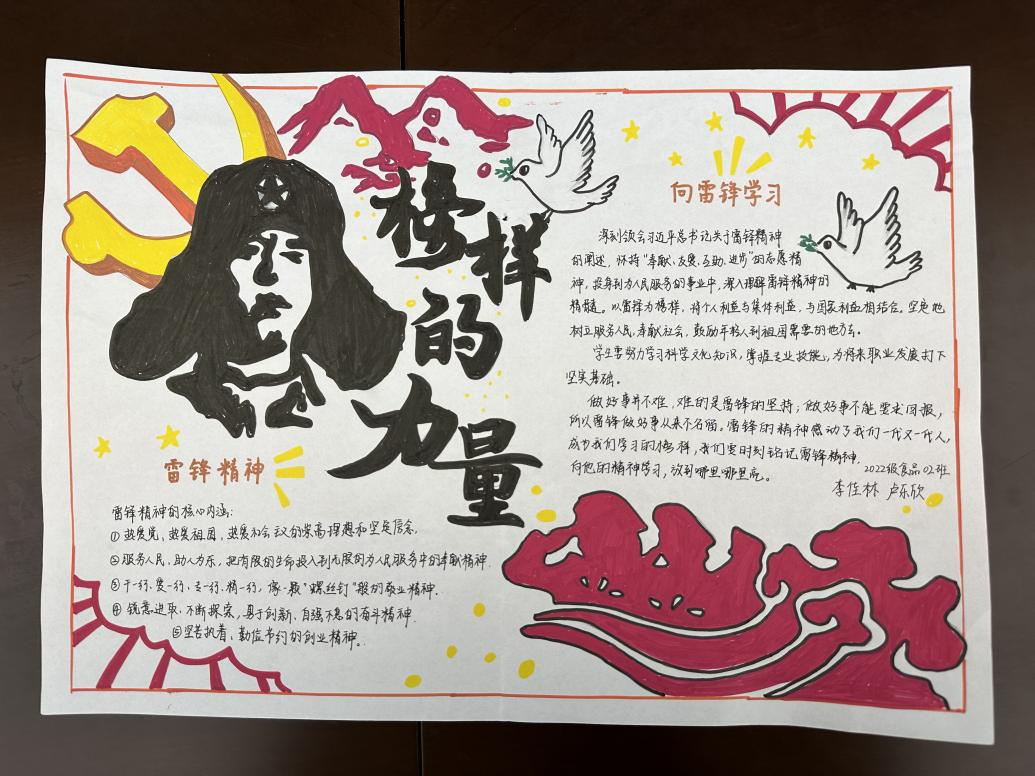 榜样
的
力量
雷锋精神
雷锋精神的核心内涵:
①热爱党,热爱祖国,热爱社会主义的崇高理想和坚定信念.
②服务人民,助人为乐,把有限的生命投入到无限的为人民服务中的奉献精神.
③干一行、爱一行、专一行、精一行,像一颗"螺丝钉"般的敬业精神.
④锐意进取、不断探索、勇于创新、自强不息的奋斗精神.
⑤坚苦执着、勤俭节约的创业精神.
向雷锋学习
深刻领会习近平总书记关于雷锋精神
的阐述,怀持"奉献、友爱、互助、进步"的志愿精
神,投身到为人民服务的事业中,深入理解雷锋精神的
精髓。以雷锋为榜样,将个人利益与集体利益,与国家利益相结合。坚定地
树立服务人民,奉献社会,鼓励年轻人到祖国需要的地方去。
学生要努力学习科学文化知识,掌握专业技能,为将来职业发展打下
坚实基础。
做好事并不难,难的是雷锋的坚持;做好事不能要求回报,
所以雷锋做好事从来不名留。雷锋的精神感动了我们一代又一代人,
成为我们学习的榜样,我们要时刻铭记雷锋精神.
向他的精神学习,做到哪里哪里亮。
2022级食品02班
李佳林 卢乐欣